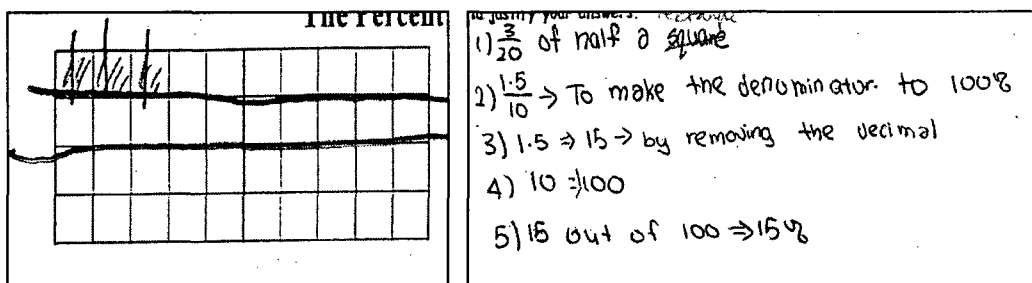 The Percent
to justify your answers. rectangle
1) 3/20 of half a square
2) 1.5/10 → To make the denominator. to 100%
3) 1.5 ⇒ 15 → by removing the decimal
4) 10 ⇒ 100
5) 15 out of 100 ⇒ 15%